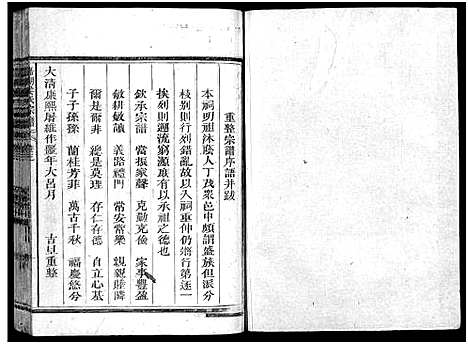 重整宗譜序語并跋
本祠明祖沐廕人丁茂衆邑中頗謂盛族但派分
枝别則行列錯亂故以入祠垂仲仍將行第逐一
挨刻則遡流窮源庶有以承祖之德也
欽承宗譜 當振家聲 克勤克儉 家事豐盈
敏耕敏讀 義路禮門 常安常樂 親親
爾是爾非 總是莫理 存仁存德 自立心基
子子孫孫 蘭桂芳菲 萬古千秋 福慶悠分
大清康熙屠維作噩年大呂月 古旦重整